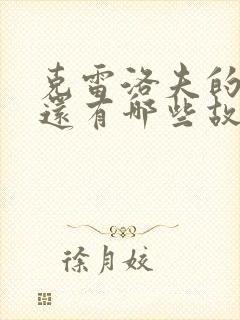 克雷洛夫的
還有哪些故
徐月姣